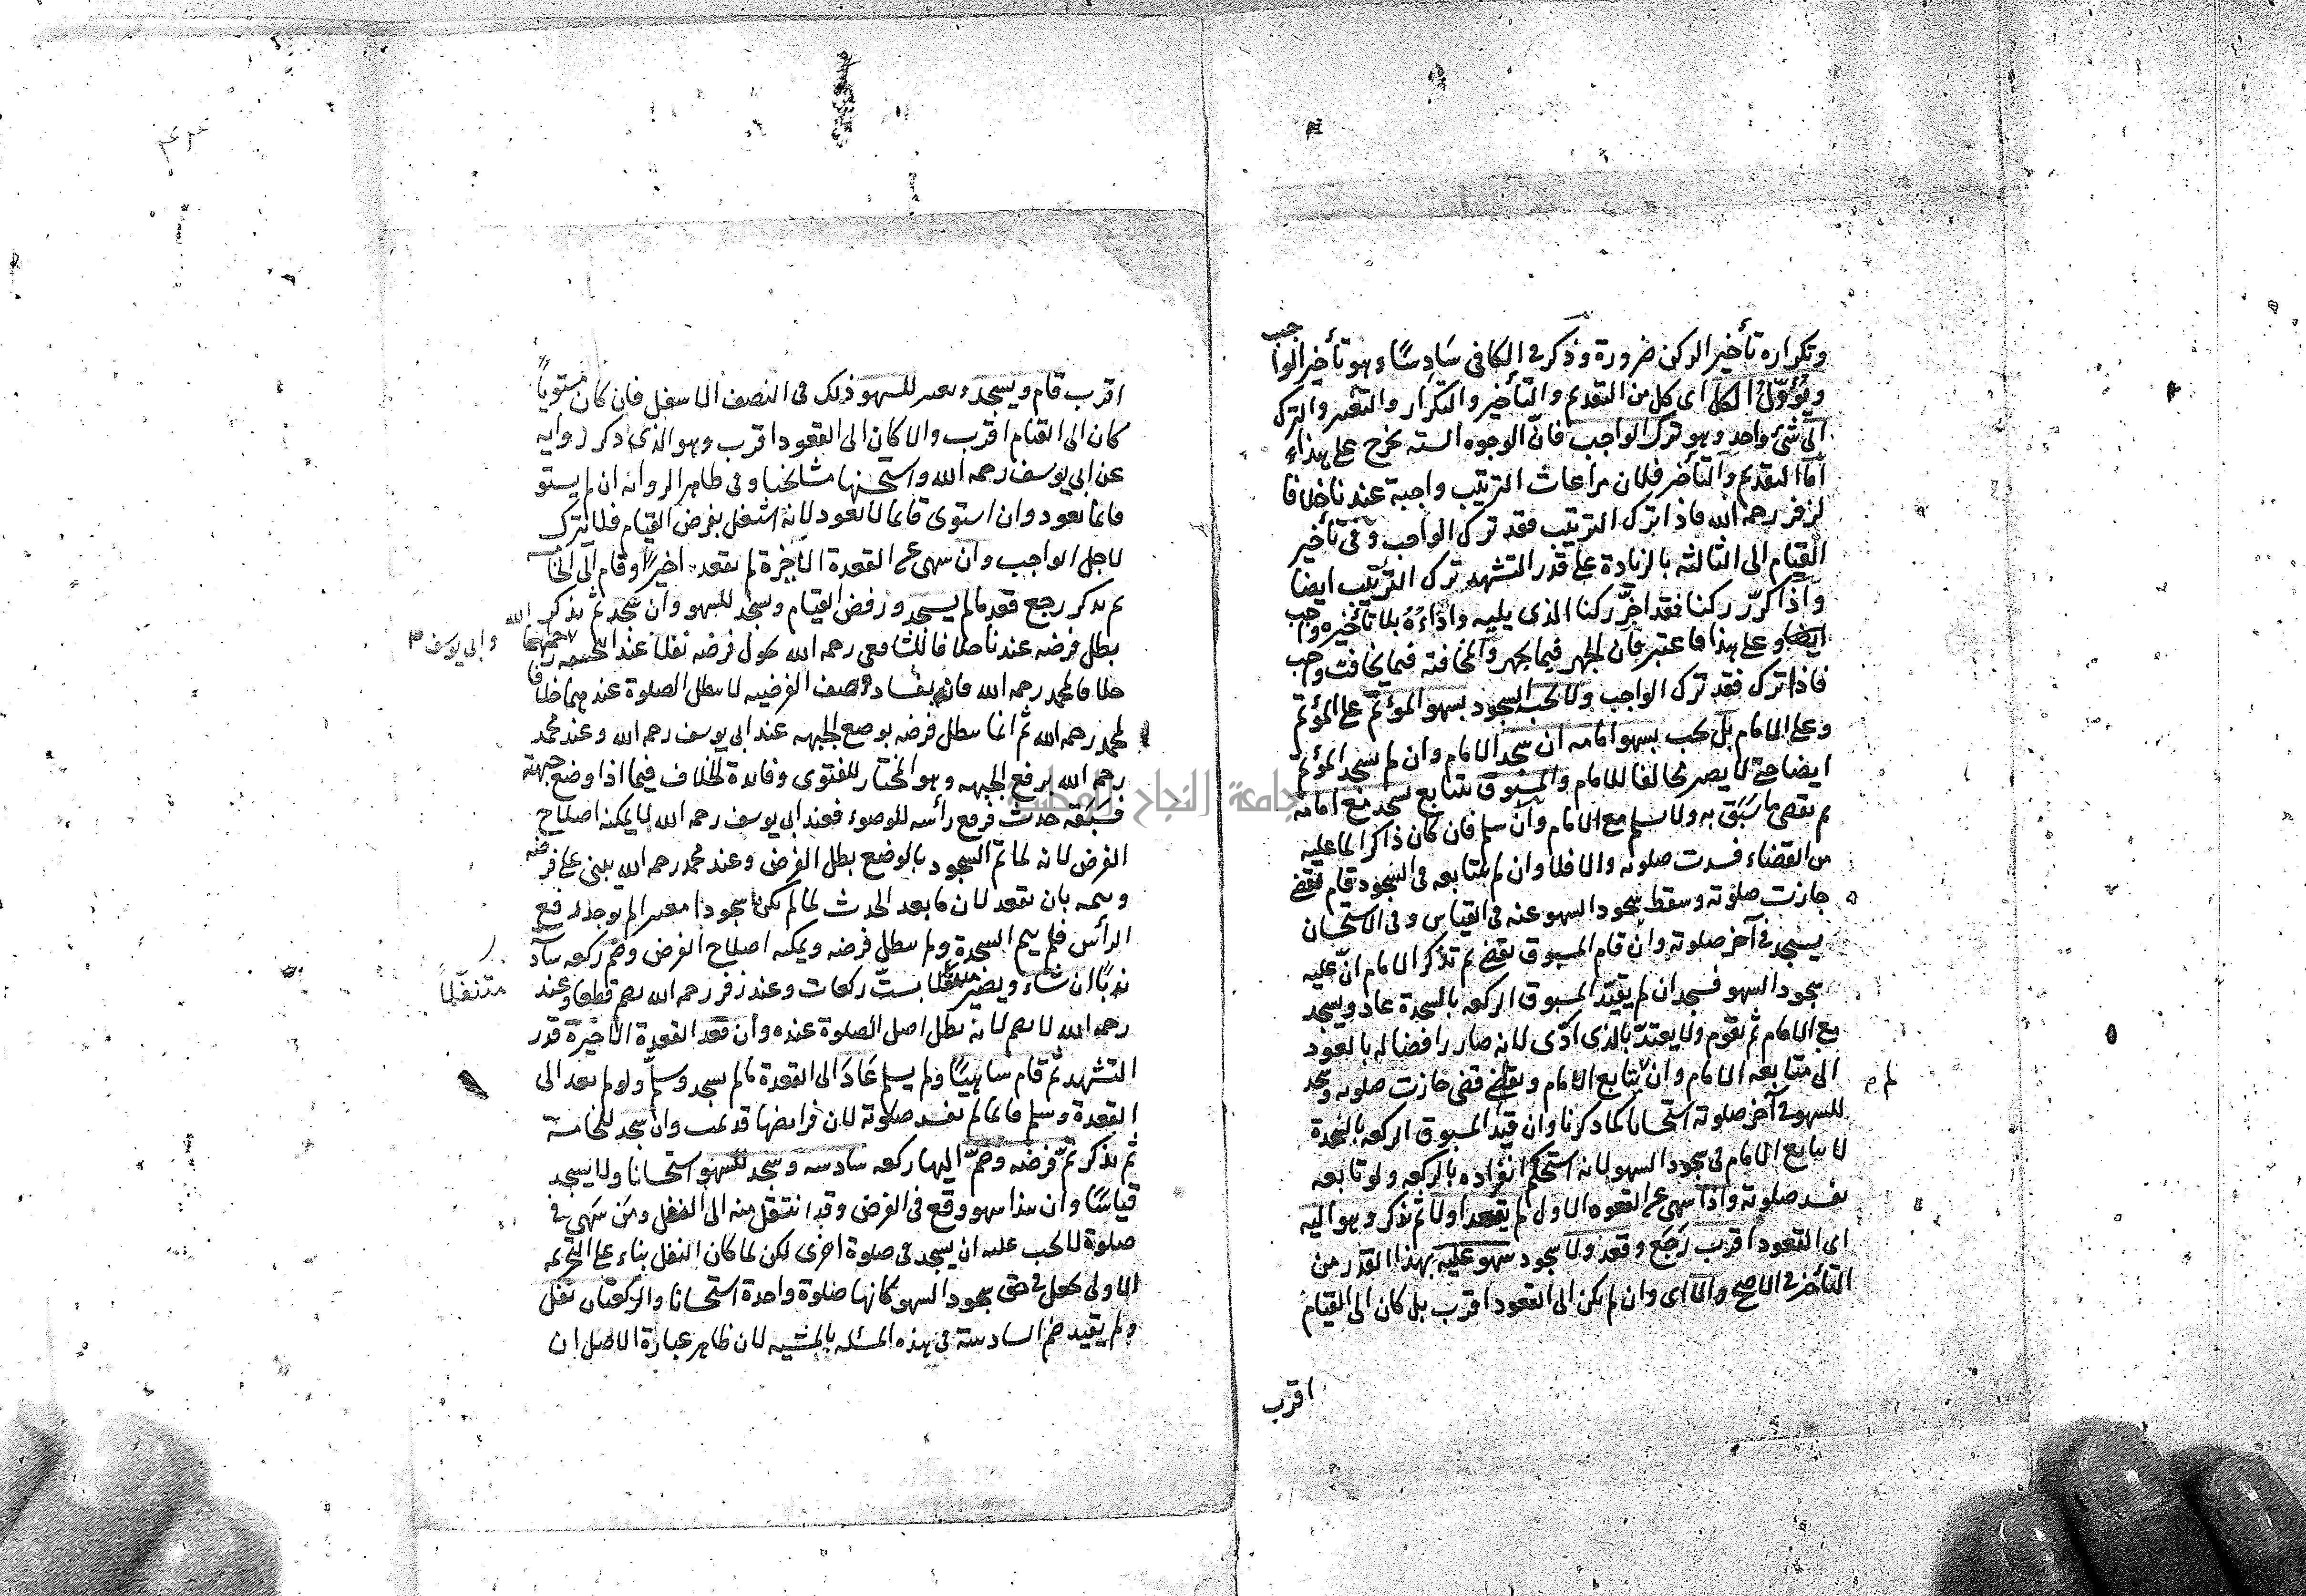 وتكراره تأخير الركن ضرورة وذكر في الكافي سَادِسًا وهو تأخير الواجب
ويُؤوّلُ الكل اى كل من التقديم والتأخير والتكرار والتغير والترك
الى شئ واحد وهو ترك الواجب فانّ الوجوه الستة تخرج على هذا
امّا التقديم والتأخير فلان مراعات الترتيب واجبة عندنا خلافا
لزفر رحمه الله فاذا ترك الترتيب فقد ترك الواجب وفى تأخير
القيام الى الثالثة بالزيادة على قدر التشهد ترك الترتيب ايضا
واذا كرّر ركنا فقد اخّر ركنا الذى يليه واداءُهُ بلا تأخيره واجب
ايضا وعلى هذا فاعتبر فان الجهر فيما يجهر والمخافتة فيما يخافت واجب
فاذا ترك فقد ترك الواجب ولا يجب السجود بسهو المؤتم على المؤتم
وعلى الامام بل يجب بسهو امامه ان سجد الامام وان لم يسجد المؤتم
ايضا حتى لا يصير مخالفا للامام والمسبوق يتابع يسجد مع امامه
ثم يقضى ما سبق به ولا يسلم مع الامام وان سلم فان كان ذاكرا لما عليه
من القضاء فسدت صلوته والا فلا وان لم يتابعه فى السجود قام يقضى
جازت صلوته وسقط سجود السهو عنه فى القياس وفى الاستحسان
يسجد فى آخر صلوته وان قام المسبوق يقضى ثم تذكر الامام انّ عليه
سجود السهو فسجد ان لم يقيّد المسبوق الركعة بالسجدة عاد ويسجد
مع الامام ثم يقوم ولا يعتدّ بالذى ادّى لانه صار رافضا له بالعود
الى متابعة الامام وان لم يتابع الامام وقضى جازت صلوته وسجد
للسهو فى آخر صلوته استحسانا لما ذكرنا وان قيد المسبوق الركعة بالسجدة
لا يتابع الامام فى سجود السهو لانه استحكم انفراده بالركعة ولو تابعه
تفسد صلوته واذا سهى عن القعدة الاولى لم يقعد اولا ثم تذكر وهو اليه
اى القعود اقرب رجع وقعد ولا سجود سهو عليه بهذا القدر من
التأخير فى الاصح والا اى وان لم يكن الى القعود اقرب بل كان الى القيام
اقرب
اقرب قام ويسجد للسهو ذلك فى النصف الاسفل فان كان مستوياً
كان الى القيام اقرب والا كان الى القعود اقرب وهو الذى ذكر رواية
عن ابى يوسف رحمه الله واستحسنها مشائخنا وفى ظاهر الرواية ان لم يستو
قائما يعود وان استوى قائما لا يعود لانه اشتغل بفرض القيام فلا يترك
لاجل الواجب وان سهى عن القعدة الاخيرة لم يقعد اخيرًا وقام الى الخامسة
ثم تذكر رجع قعد ما لم يسجد ورفض القيام وسجد للسهو وان سجد ثم تذكر
بطل فرضه عندنا خلافا للشافعى رحمه الله تحول فرضه نفلا عند ابى حنيفة وابى يوسف رحمهما الله
خلافا لمحمد رحمه الله فانه بفساد وصف الفرضيه لا يبطل الصلوة عندهما خلافا
لمحمد رحمه الله ثم انما يبطل فرضه بوضع الجبهة عند ابى يوسف رحمه الله وعند محمد
رحمه الله برفع الجبهه وهو المختار للفتوى وفائدة الخلاف فيما اذا وضع جبهته
فسبقه حدث فرفع رأسه للوضوء فعند ابى يوسف رحمه الله لا يمكنه اصلاح
الفرض لانه لما تم السجود بالوضع بطل الفرض وعند محمد رحمه الله يبنى على فرضه
ويتمه بان يقعد لان ما بعد الحدث لما لم يكن سجودا معتبرا لم يوجد رفع
الرأس فلم يتم السجدة ولم يبطل فرضه ويمكنه اصلاح الفرض وضم ركعة سادسة
ندبًا ان شاء ويصير متنفلًا بستّ ركعات وعند زفر رحمه الله يضم قطعا وعند
رحمه الله لا يضم لانه يطل اصل الصلوة عنده وان قعد القعدة الاخيرة قدر
التشهد ثم قام ساهيًا ولم يسلم عَادَ الى القعدة ما لم يسجد وسلّم ولو لم يعد الى
القعدة وسلم قائما لم تفسد صلوته لان فرائضها قد تمت وان سجد للخامسة
ثم تذكر تمّ فرضه وضمّ اليها ركعة سادسه وسجد للسهو استحسانا ولا يسجد
قياسًا وان هذا سهو وقع فى الفرض وقد انتقل منه الى النفل ومن سَهى فى
صلوة لا يجب عليه ان يسجد فى صلوة اخرى لكن لما كان النفل بناء على التحريمة
الاولى يجعل فى حق سجود السهو كانها صلوة واحدة استحسانا والركعتان نفل
ولم يقيد ضم السادسة فى هذه المسئله بالمشيه لان ظاهر عبارة الاصل ان
جامعة النجاح الوطنية